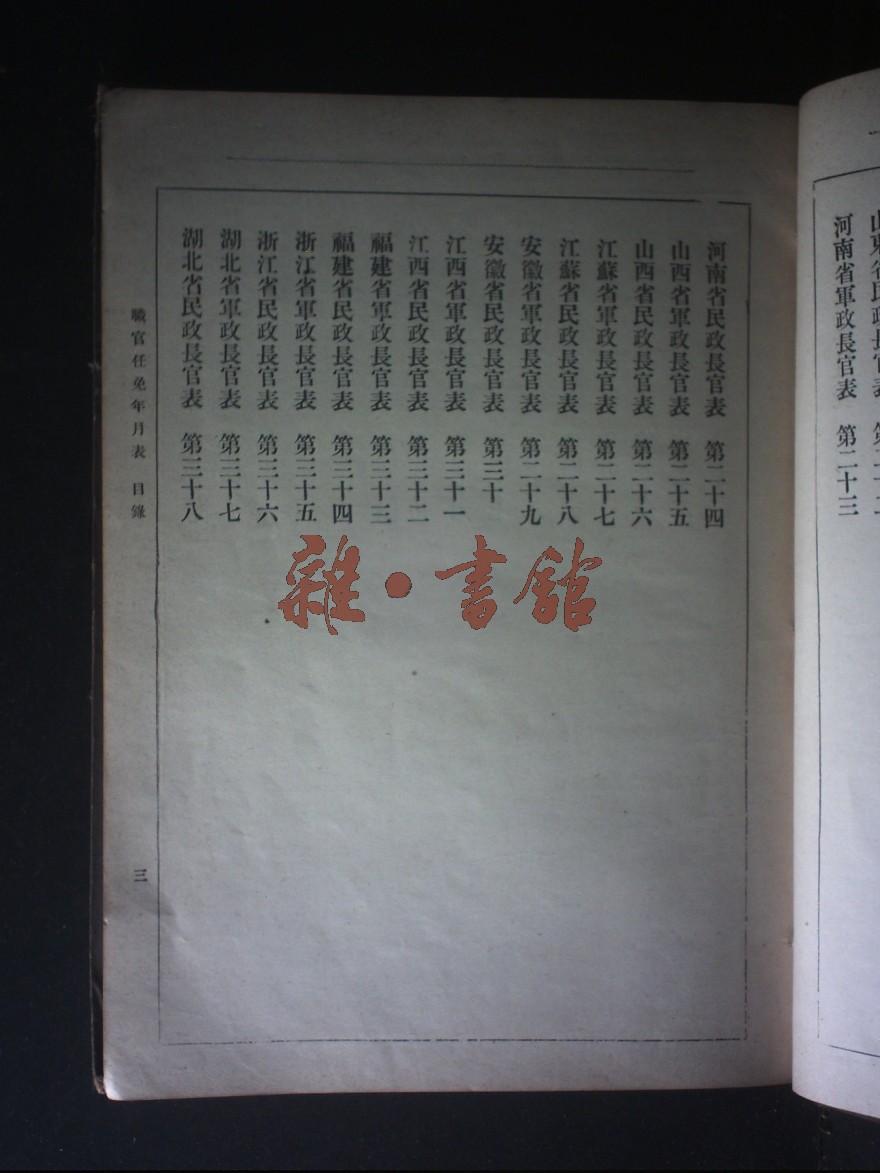 山東省民政長官表
河南省軍政長官表　第二十三
河南省民政長官表　第二十四
山西省軍政長官表　第二十五
山西省民政長官表　第二十六
江蘇省軍政長官表　第二十七
江蘇省民政長官表　第二十八
安徽省軍政長官表　第二十九
安徽省民政長官表　第三十
江西省軍政長官表　第三十一
江西省民政長官表　第三十二
福建省軍政長官表　第三十三
福建省民政長官表　第三十四
浙江省軍政長官表　第三十五
浙江省民政長官表　第三十六
湖北省軍政長官表　第三十七
湖北省民政長官表　第三十八
職官任免年月表　目錄
三
雜・書館